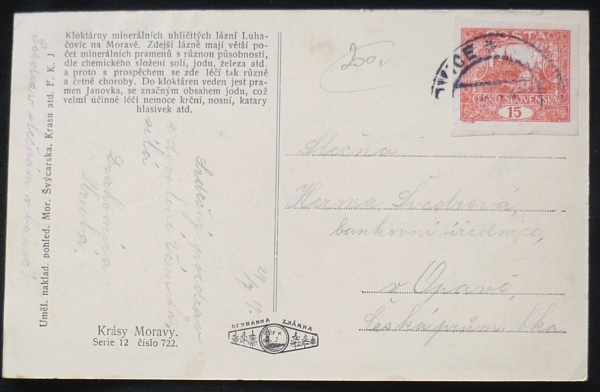 Kloktárny minerálních uhličitých lázní Luha-
čovic na Moravě. Zdejší lázně mají větší po-
čet minerálních pramenů s různou působností,
dle chemického složení solí, jodu, železa atd.
a proto s prospěchem se zde léčí tak různé
a četné choroby. Do kloktáren veden jest pra-
men Janovka, se značným obsahem jodu, což
velmi účinně léčí nemoce krční, nosní, katary
hlasivek atd.
Uměl. naklad. pohled. Mor. Švýcarska, Krasu atd. F. K. J
Srdečný pozdrav
z dovolené
Drahomíra
29/
Krásy Moravy.
Serie 12 číslo 722.
OCHRANNÁ ZNÁMKA
POŠTA
ČESKO-SLOVENSKÁ
15
VICE
Slečna
Herma Švédová,
bankovní úřednice,
v Opavě,
Českáprům. b-ka